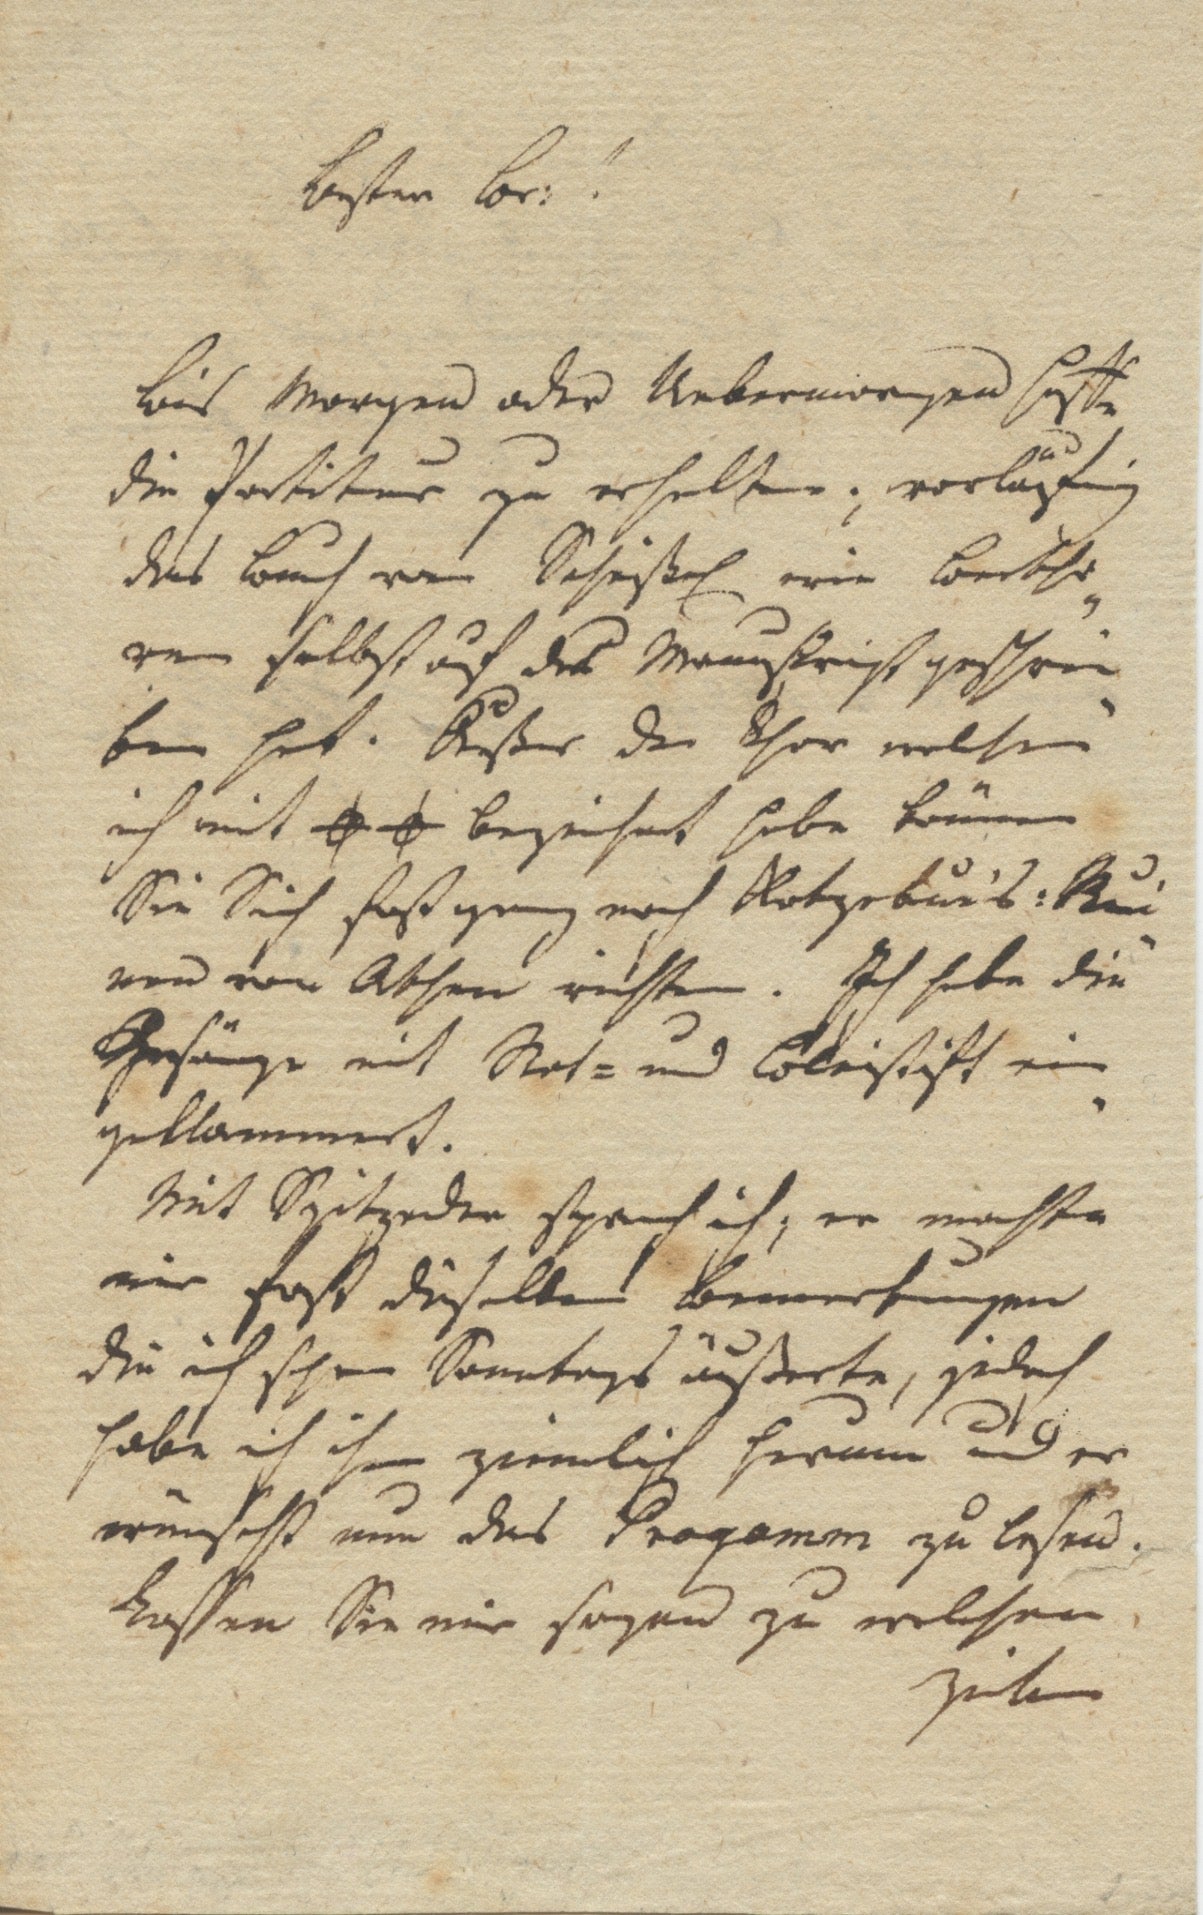 Bester Br: !
Bis Morgen oder Uebermorgen hoffe
die Partitur zu erhalten; vorläufig
das Buch von Schickh wie Beetho„
ven selbst auf das Manuskript geschrie„
ben hat. Außer den Chor welchen
ich mit ꚛ ꚛ bezeichnet habe können
Sie Sich fast ganz nach Kotzebue's: Rui„
nen von Athen richten. Ich habe die
Gesänge mit Rot= und Bleistift ein„
geklammert.
Mit Spitzeder sprach ich; er machte
mir fast dieselben Bemerkungen
die ich schon Sonntags äußerte, jedoch
habe ich ihn ziemlich herum und er
wünscht nun das Progamm zu lesen.
Lassen Sie mir sagen zu welchen
Zeiten